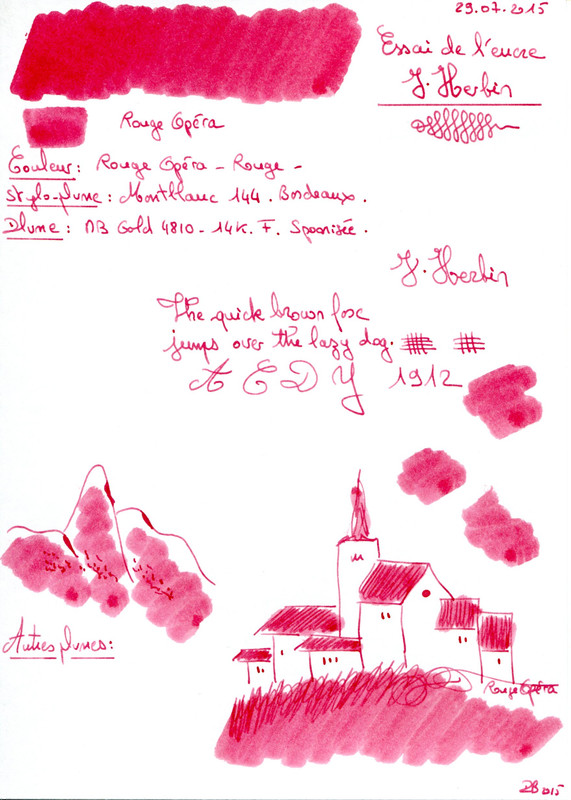 29.07.2015
Essai de l'encre
J. Herbin
Rouge Opéra
Couleur: Rouge Opéra - Rouge -
Stylo-plume: Montblanc 144. Bordeaux.
Plume: MB Gold 4810 - 14K. F. Spoonisée.
J. Herbin
The quick brown fox
jumps over the lazy dog.
A E D Y 1912
Autres plumes:
Rouge Opéra
DB 2015